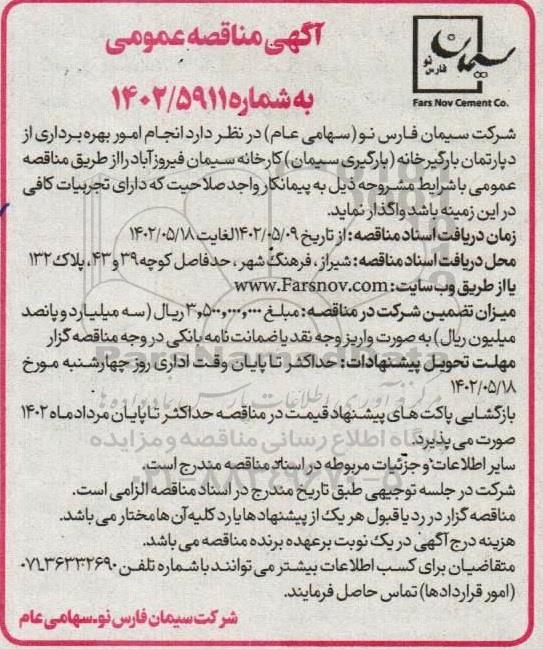 آگهی مناقصه عمومی
به شماره ۱۴۰۲/۵۹۱۱
سیمان
فارس نو
Fars Nov Cement Co.
شرکت سیمان فارس نو (سهامی عام) در نظر دارد انجام امور بهره برداری از
دپارتمان بارگیرخانه (بارگیری سیمان) کارخانه سیمان فیروزآباد را از طریق مناقصه
عمومی با شرایط مشروحه ذیل به پیمانکار واجد صلاحیت که دارای تجربیات کافی
در این زمینه باشد واگذار نماید.
زمان دریافت اسناد مناقصه: از تاریخ ۱۴۰۲/۰۵/۰۹ لغایت ۱۴۰۲/۰۵/۱۸
محل دریافت اسناد مناقصه: شیراز، فرهنگ شهر، حدفاصل کوچه ۳۹ و ۴۳، پلاک ۱۳۲
یا از طریق وب سایت: www.Farsnov.com
میزان تضمین شرکت در مناقصه: مبلغ ۳,۵۰۰,۰۰۰,۰۰۰ ریال (سه میلیارد و پانصد
میلیون ریال) به صورت واریز وجه نقد یا ضمانت نامه بانکی در وجه مناقصه گزار
مهلت تحویل پیشنهادات: حداکثر تا پایان وقت اداری روز چهارشنبه مورخ
۱۴۰۲/۰۵/۱۸
بازگشایی پاکت های پیشنهاد قیمت در مناقصه حداکثر تا پایان مردادماه ۱۴۰۲
صورت می پذیرد.
سایر اطلاعات و جزئیات مربوطه در اسناد مناقصه مندرج است.
شرکت در جلسه توجیهی طبق تاریخ مندرج در اسناد مناقصه الزامی است.
مناقصه گزار در رد یا قبول هر یک از پیشنهادها یا رد کلیه آن ها مختار می باشد.
هزینه درج آگهی در یک نوبت بر عهده برنده مناقصه می باشد.
متقاضیان برای کسب اطلاعات بیشتر می توانند با شماره تلفن ۰۷۱۳۶۲۳۲۶۹۰
(امور قراردادها) تماس حاصل فرمایند.
شرکت سیمان فارس نو-سهامی عام
ParsNamadData
پایگاه اطلاع رسانی مناقصه و مزایده